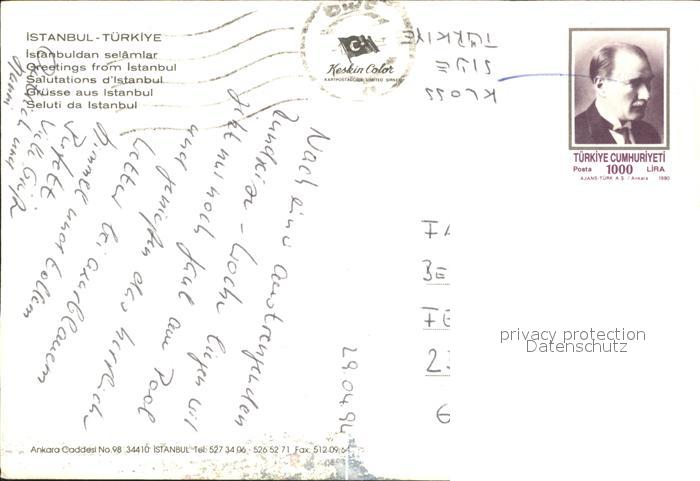 İSTANBUL - TÜRKİYE
İstanbuldan selâmlar
Greetings from İstanbul
Salutations d'İstanbul
Grüsse aus İstanbul
Seluti da İstanbul
Keskin Color
KARTPOSTALCILIK LIMITED ŞIRKETI
TÜRKİYE CUMHURİYETİ
Posta 1000 LİRA
AJANS-TÜRK A.Ş. / Ankara 1990
KLOSS
SIYE
TÜRKIYE
Nach einer anstrengenden
Rundreise-Woche liegen wir
jetzt nur noch faul am Pool
und genießen das herrliche
Wetter bei azurblauem
Himmel und tollem
Buffet.
Viele Grüße
29.04.94
privacy protection
Datenschutz
Ankara Caddesi No.98 34410 İSTANBUL Tel: 527 34 06 - 526 52 71 Fax: 512 09 6